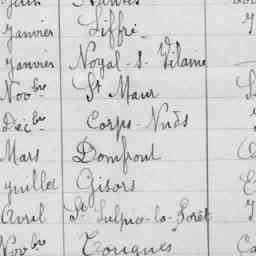 Juin Nantes
Janvier Liffré
Janvier Noyal-s-Vilaine
Nov.bre St Maur
Déc.bre Corps-Nuds
Mars Domfront
Juillet Gisors
Avril St Sulpice-la-Forêt
Nov.bre Tougues